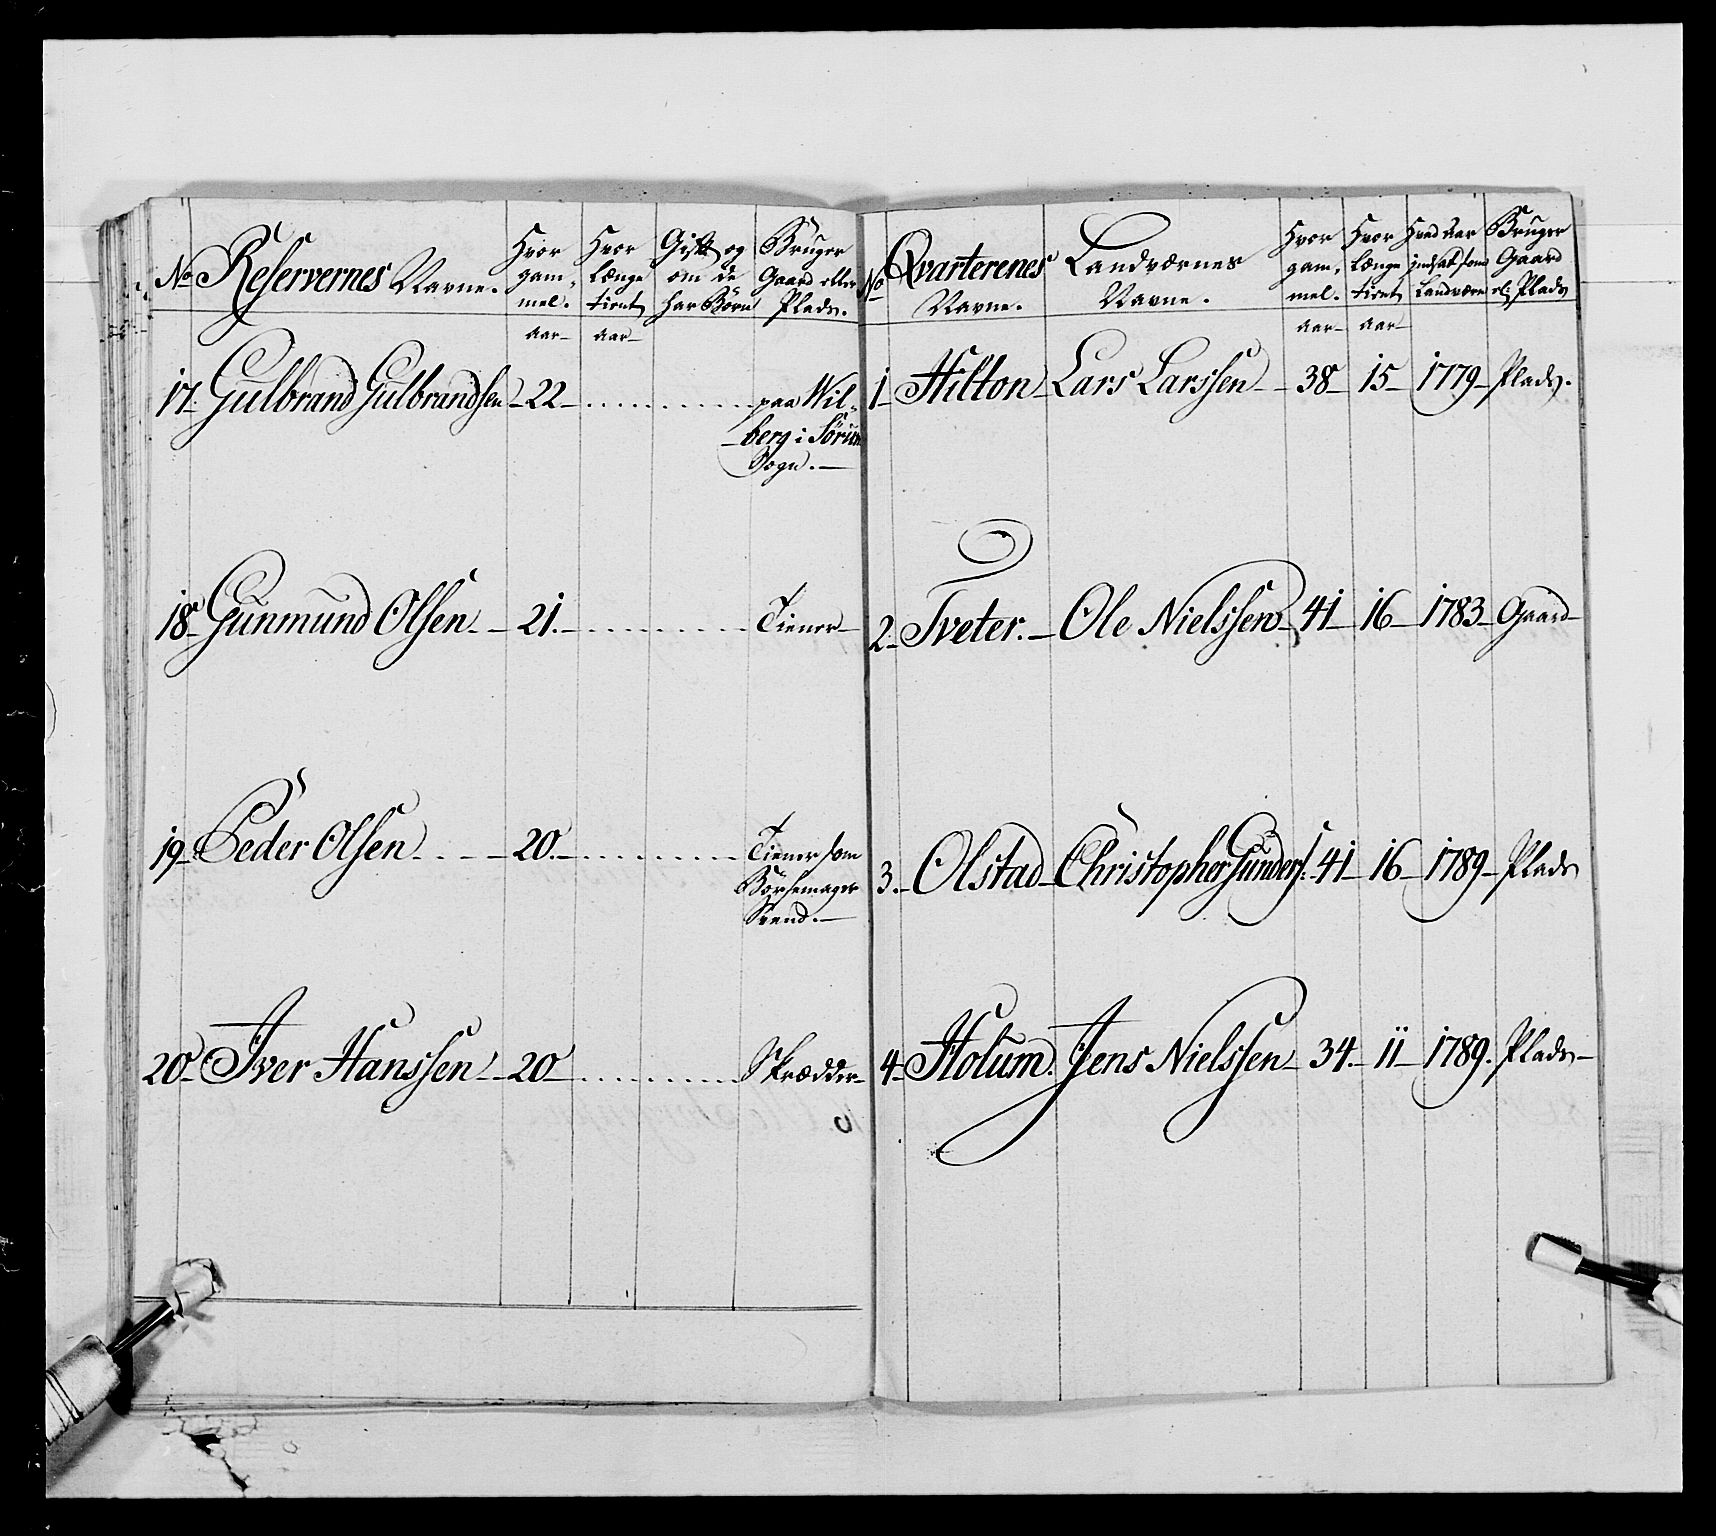 No Reservernes Navne. Hvor gam- mel. Hvor længe tient Gift og om de har Börn Bruger Gaard eller Plads.
aar- aar-
17. Gulbrand Gulbrandsen - 22 - paa Wil-
berg i Sörum
Sogn. -
18 - Gunmund Olsen - 21. - Tiener -
19 - Peder Olsen - 20. - Tiener som
Börsemager
Svend. -
20 - Iver Hanssen - 20 - Skrædder -
No Qvarterenes Navne. Landværnes Navne. Hvor gam- mel. Hvor længe tient Hvad aar indsat som Landværn Bruger Gaard el: Plads
aar- aar-
1 - Hilton - Lars Larssen - 38 - 15 - 1779 - Plads.
2 - Tveter. - Ole Nielssen - 41 - 16 - 1783 - Gaard -
3. - Olstad - Christopher Gunders: 41 - 16 - 1789 - Plads
4 - Holum. Jens Nielssen - 34. - 11 - 1789. Plads -